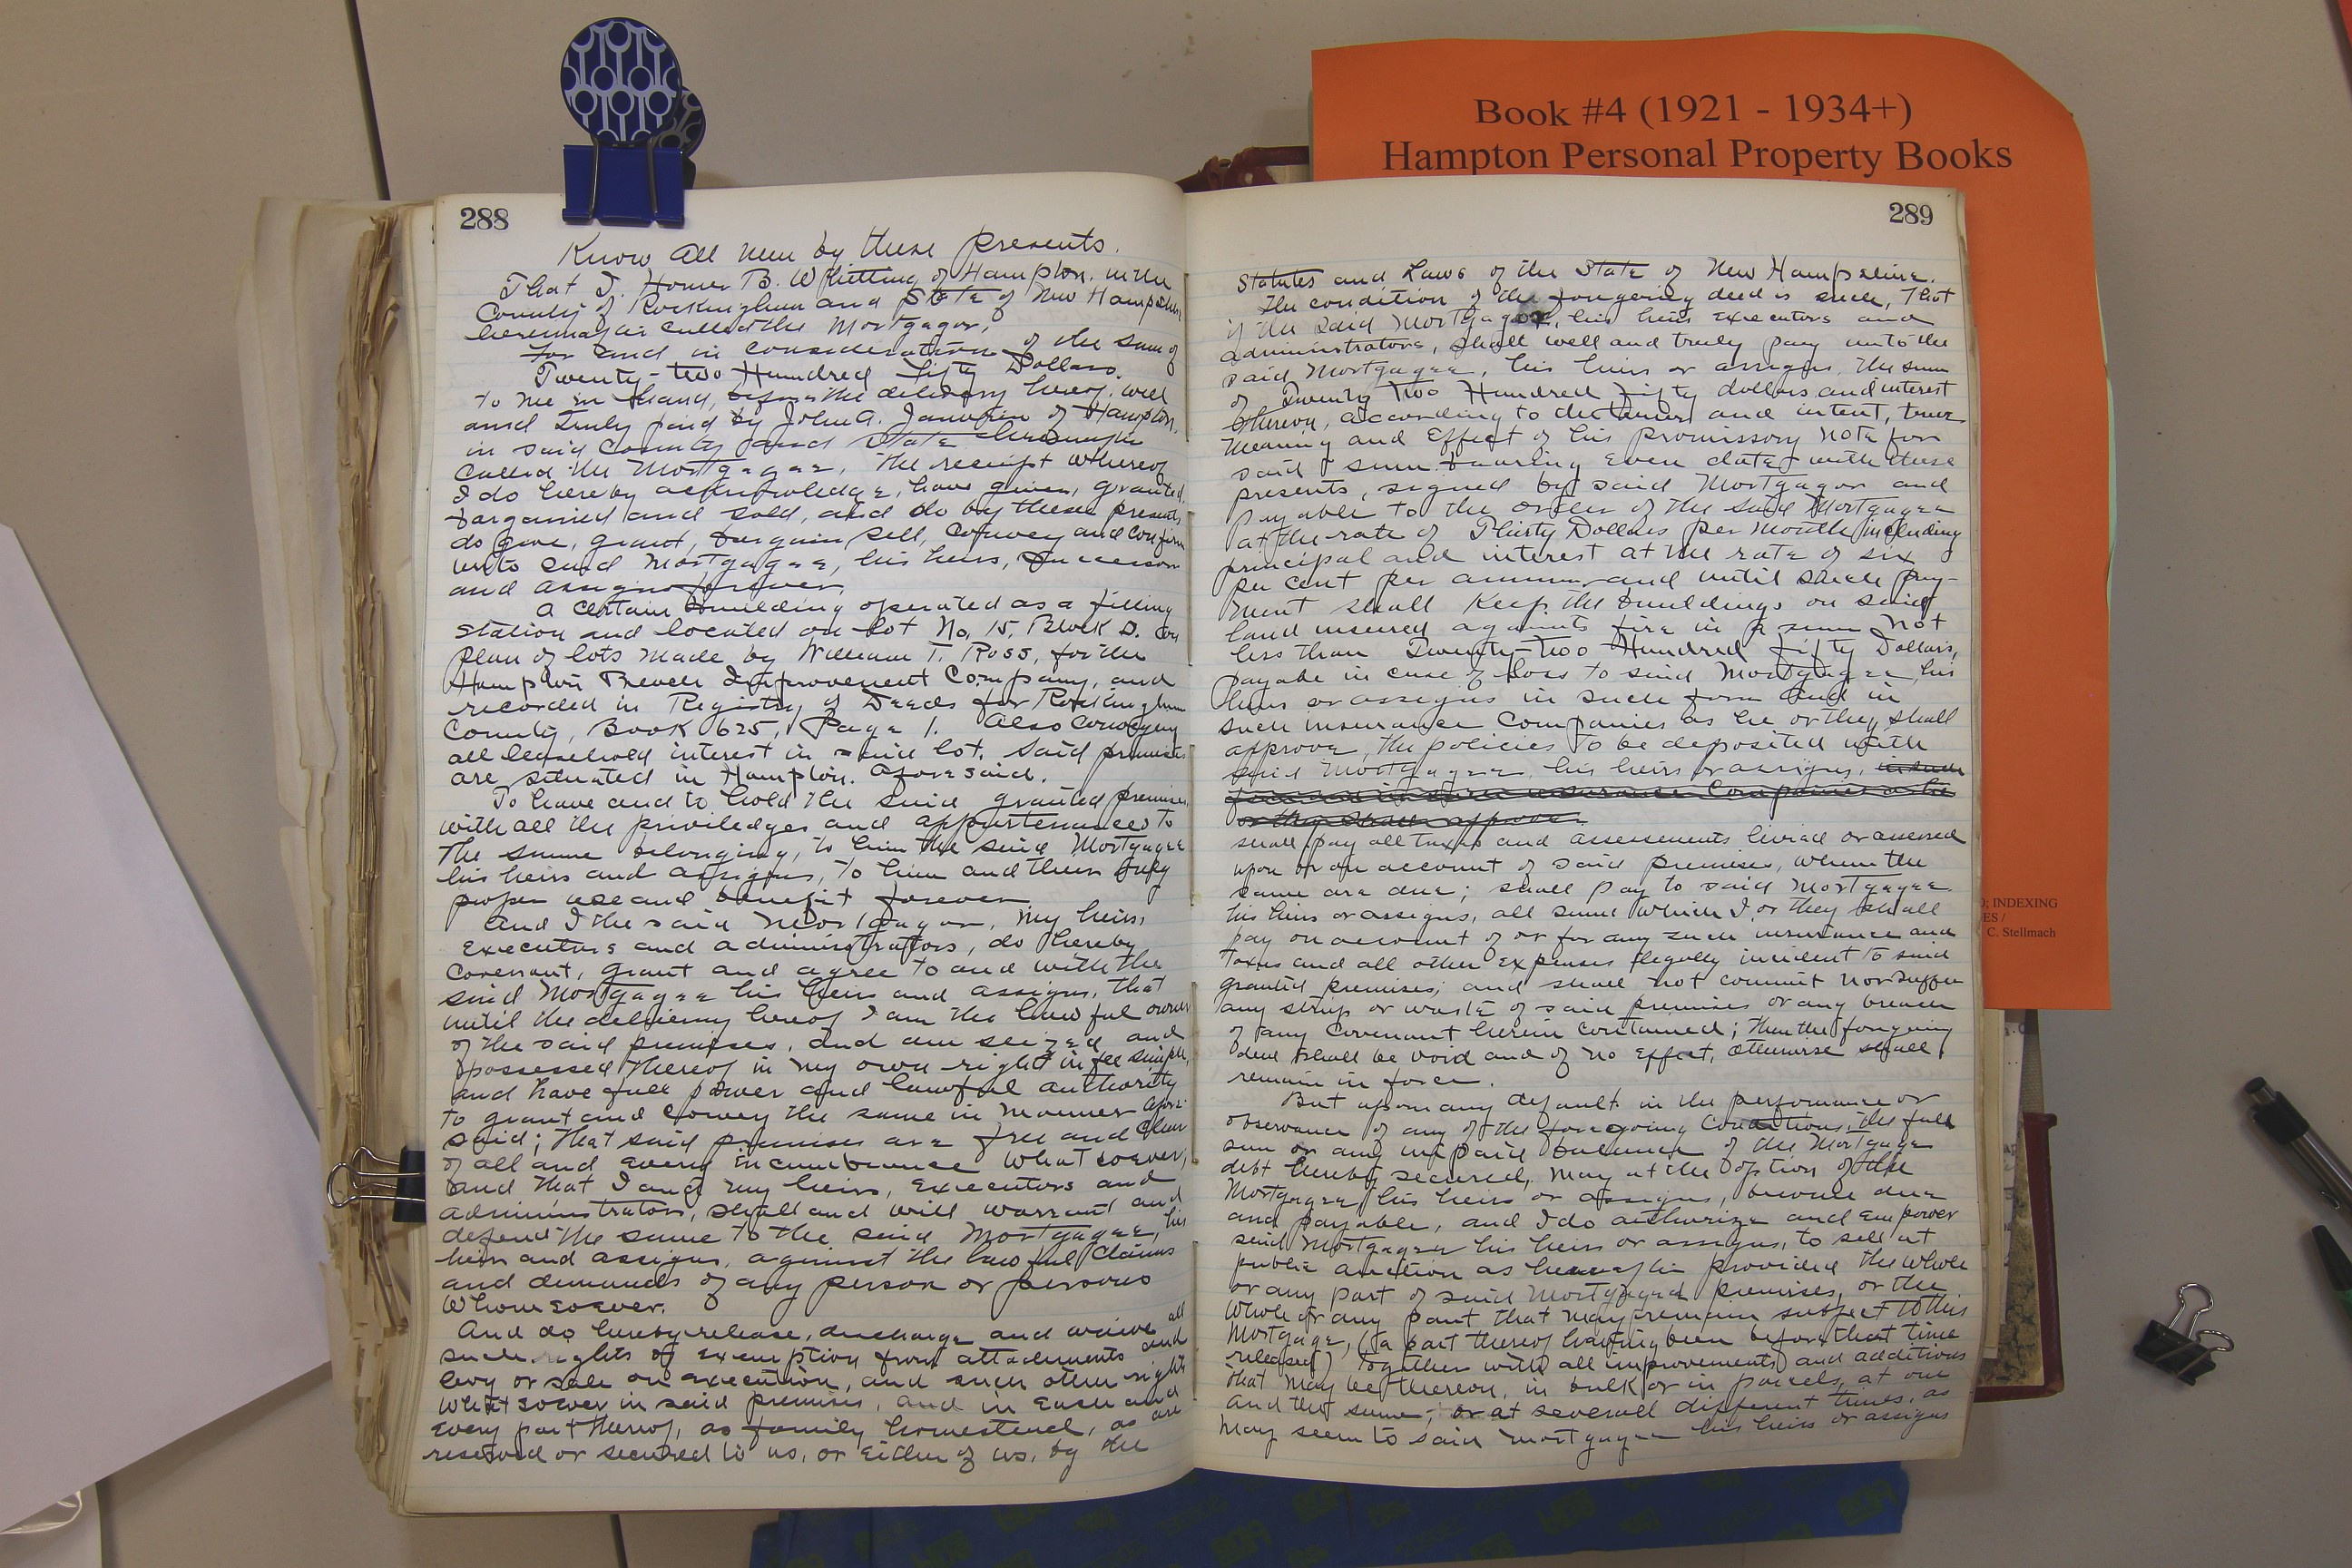 Book #4 (1921 - 1934+)
Hampton Personal Property Books
D; INDEXING
ES /
C. Stellmach
288
Know all men by these presents.
That I. Homer B. Whitting of Hampton. in the
County of Rockingham and State of New Hampshire
hereinafter called the Mortgagor,
for and in consideration of the sum of
Twenty-two Hundred fifty Dollars.
to me in hand, before the delivery hereof, well
and truly paid by John A. Janvrin of Hampton,
in said County and State hereinafter
called the Mortgagee, the receipt whereof
I do hereby acknowledge, have given, granted,
bargained and sold, and do by these presents
do give, grant, bargain, sell, convey and confirm
unto said Mortgagee, his heirs, successors
and assigns forever.
A certain building operated as a filling
station and located on lot No. 15, Block D. on
plan of lots made by William T. Ross, for the
Hampton Beach Improvement Company, and
recorded in Registry of Deeds for Rockingham
County, Book 625, Page 1. Also conveying
all leasehold interest in said lot. Said premises
are situated in Hampton. Aforesaid.
To have and to hold the said granted premises,
with all the priviledges and appurtenances to
the same belonging, to him the said Mortgagee
his heirs and assigns, to him and their only
proper use and benefit forever
And I the said Mortgagor, my heirs,
executors and administrators, do hereby
covenant, grant and agree to and with the
said Mortgagee his heirs and assigns, that
until the delivery hereof I am the lawful owner
of the said premises, and am seized and
possessed thereof in my own right in fee simple,
and have full power and lawful authority
to grant and convey the same in manner afore-
said; that said premises are free and clear
of all and every incumbrance whatsoever;
and that I and my heirs, executors and
administrators, shall and will warrant and
defend the same to the said Mortgagee, his
heirs and assigns, against the lawful claims
and demands of any person or persons
whomsoever.
And do hereby release, discharge and waive all
such rights of exemption from attachments and
levy or sale on execution, and such other rights
whatsoever in said premises, and in each and
every part thereof, as family homestead, as are
reserved or secured to us, or either of us, by the
289
Statutes and Laws of the State of New Hampshire.
The condition of the foregoing deed is such, That
if the said Mortgagor, his heirs executors and
administrators, shall well and truly pay unto the
said Mortgagee, his heirs or assigns, the sum
of Twenty Two Hundred fifty dollars and interest
thereon, according to the tenor and intent, true
meaning and effect of his promissory note for
said sum bearing even date with these
presents, signed by said Mortgagor and
payable to the order of the said Mortgagee
at the rate of Thirty Dollars per month including
principal and interest at the rate of six
per cent per annum and until such pay-
ment shall keep the buildings on said
land insured againts fire in a sum not
less than Twenty-two Hundred fifty Dollars,
payable in case of loss to said Mortgagee, his
heirs or assigns in such form and in
such insurance Companies as he or they shall
approve, the policies to be deposited with
said Mortgagee, his heirs or assigns, in such
form and in such insurance Companies as he
or they shall approve.
shall pay all taxes and assessments levied or assessed
upon or on account of said premises, when the
same are due; shall pay to said Mortgagee
his heirs or assigns, all sums which I or they shall
pay on account of or for any such insurance and
taxes and all other expenses legally incident to said
granted premises; and shall not commit nor suffer
any strip or waste of said premises or any breach
of any covenant herein contained; then the foregoing
deed shall be void and of no effect, otherwise shall
remain in force.
But upon any default in the performance or
observance of any of the foregoing conditions, the full
sum or any unpaid balance of the Mortgage
debt hereby secured, may at the option of the
Mortgagee his heirs or assigns, become due
and payable, and I do authorize and empower
said Mortgagee his heirs or assigns, to sell at
public auction as hereinafter provided the whole
or any part of said Mortgaged premises, or the
whole or any part that may remain subject to this
Mortgage, (a part thereof having been before that time
released) together with all improvements and additions
that may be thereon, in bulk or in parcels at one
and the same, or at severall different times, as
may seem to said Mortgagee his heirs or assigns